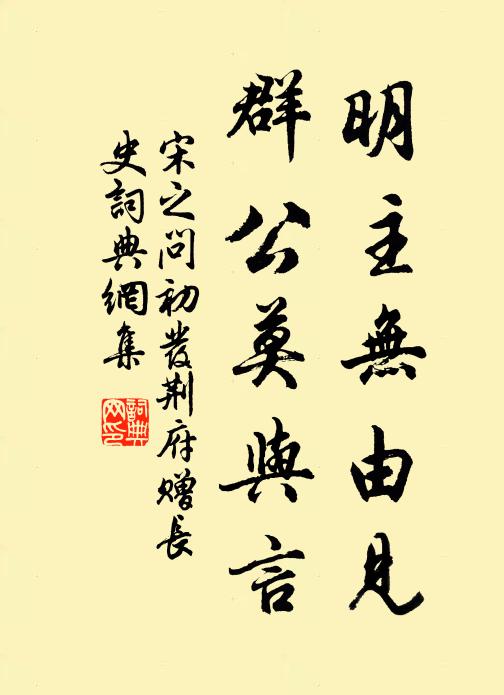 明主無由見
群公莫與言
宋之問初發荆府贈長
史詞典網集
詞典
网印